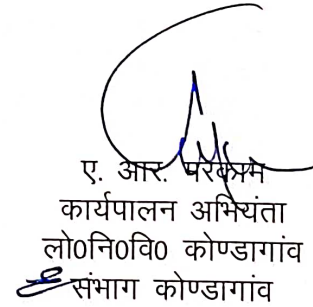 ए. आर. परकामे
कार्यपालन अभियंता
लो0नि0वि0 कोण्डागांव
संभाग कोण्डागांव